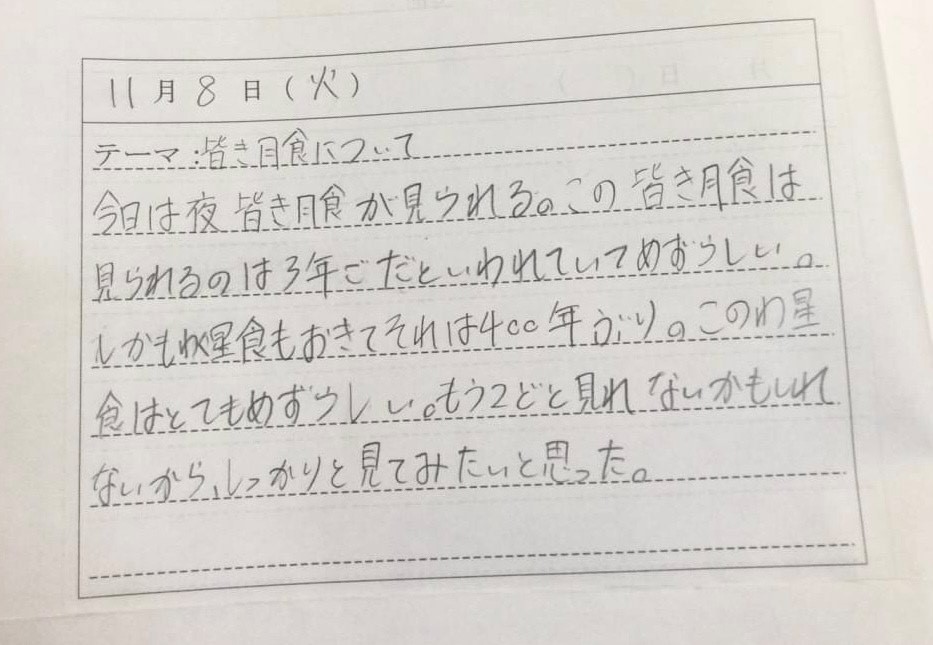 11月8日(火)
テーマ:皆き月食について
今日は夜皆き月食が見られる。この皆き月食は
見られるのは3年ごだといわれていてめずらしい。
しかもわく星食もおきてそれは400年ぶり。このわ星
食はとてもめずらしい。もう2どと見れないかもしれ
ないから、しっかりと見てみたいと思った。